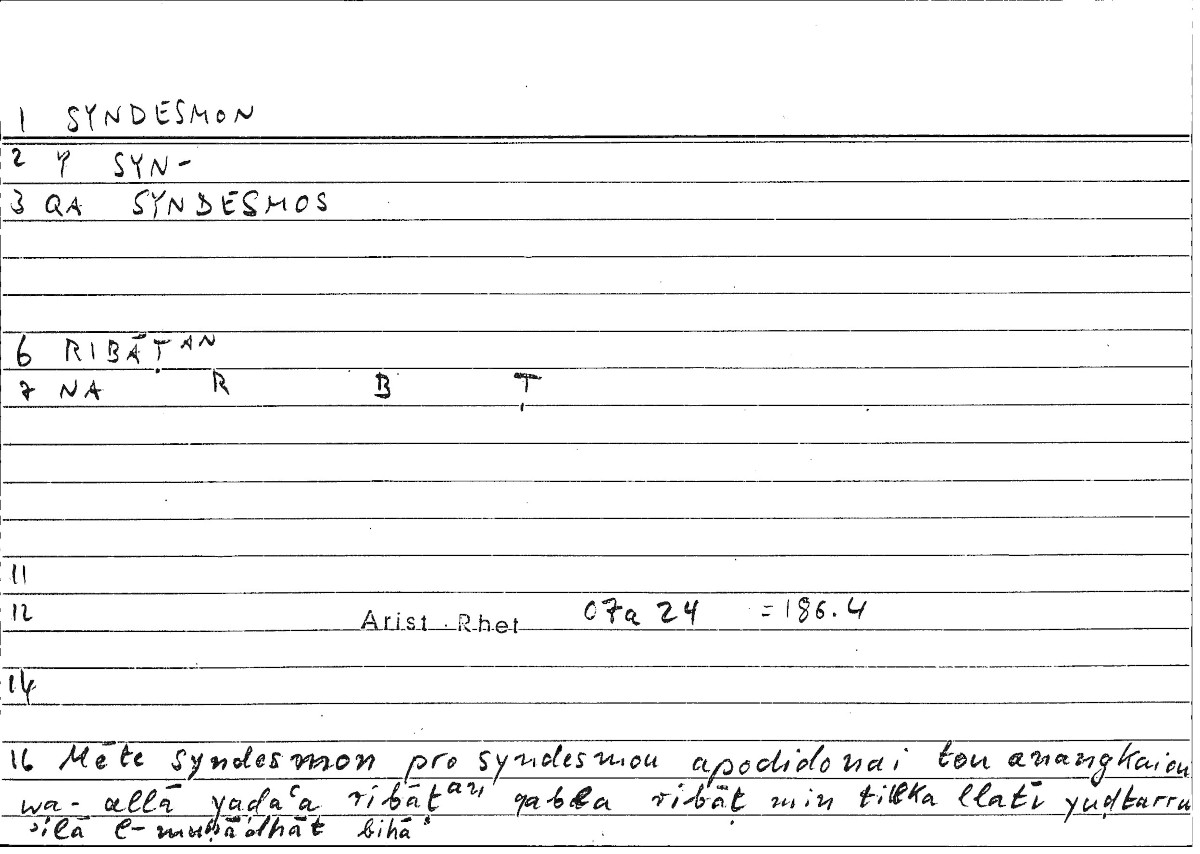 1 SYNDESMON
2 φ SYN-
3 QA SYNDESMOS
6 RIBĀṬAN
7 NA R B Ṭ
11
12 Arist. Rhet 07a 24 = 186.4
14
16 Mēte syndesmon pro syndesmou apodidonai tou anangkaiou
wa-allā yadaʿa ribāṭan qabla ribāṭ min tilka llatī yuḍtarru
ʾilā l-muḥādhāt bihā